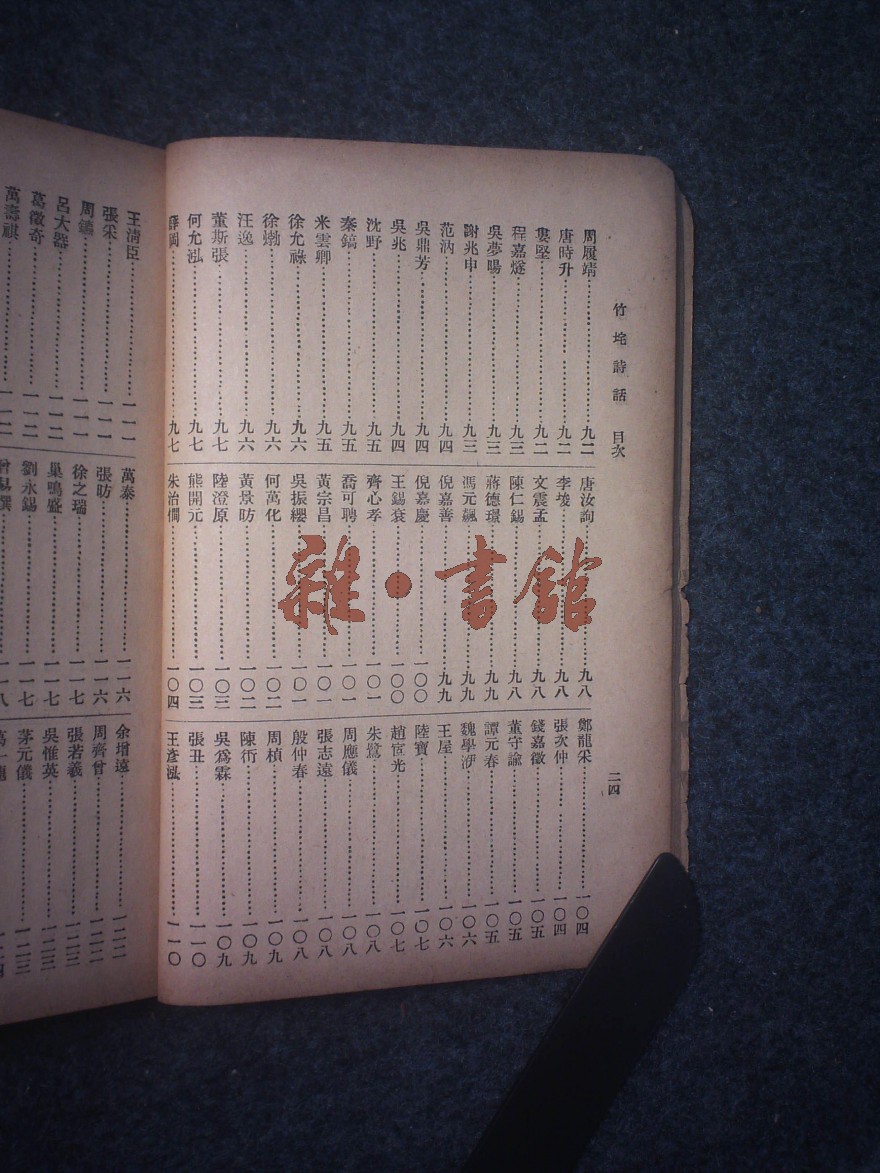 竹垞詩話 目次 二四
周履靖 九二
唐時升 九二
婁堅 九二
程嘉燧 九三
吳夢暘 九三
謝兆申 九三
范汭 九四
吳鼎芳 九四
吳兆 九四
沈野 九五
秦鎬 九五
米雲卿 九五
徐允祿 九六
徐㶿 九六
汪逸 九六
董斯張 九七
何允泓 九七
薛岡 九七
唐汝詢 九八
李埈 九八
文震孟 九八
陳仁錫 九八
蔣德璟 九九
馮元飆 九九
倪嘉善 九九
倪嘉慶 一〇〇
王錫袞 一〇〇
齊心孝 一〇一
喬可聘 一〇一
黃宗昌 一〇一
吳振纓 一〇一
何萬化 一〇二
黃景昉 一〇二
陸澄原 一〇三
熊開元 一〇三
朱治憪 一〇四
鄭龍采 一〇四
張次仲 一〇四
錢嘉徵 一〇五
董守諭 一〇五
譚元春 一〇五
魏學洢 一〇六
王屋 一〇六
陸寶 一〇七
趙宧光 一〇七
朱鷺 一〇八
周應儀 一〇八
張志遠 一〇八
殷仲春 一〇八
周楨 一〇九
陳衎 一〇九
吳爲霖 一〇九
張丑 一一〇
王彥泓 一一〇
王淸臣 一一一
張采 一一一
周鑣 一一一
呂大器 一一二
葛徵奇 一一二
萬壽祺 一一二
萬泰 一一六
張昉 一一六
徐之瑞 一一七
巢鳴盛 一一七
劉永錫 一一七
余增遠 一二二
周齊曾 一二二
張若羲 一二三
吳惟英 一二三
茅元儀 一二三
雜·書館